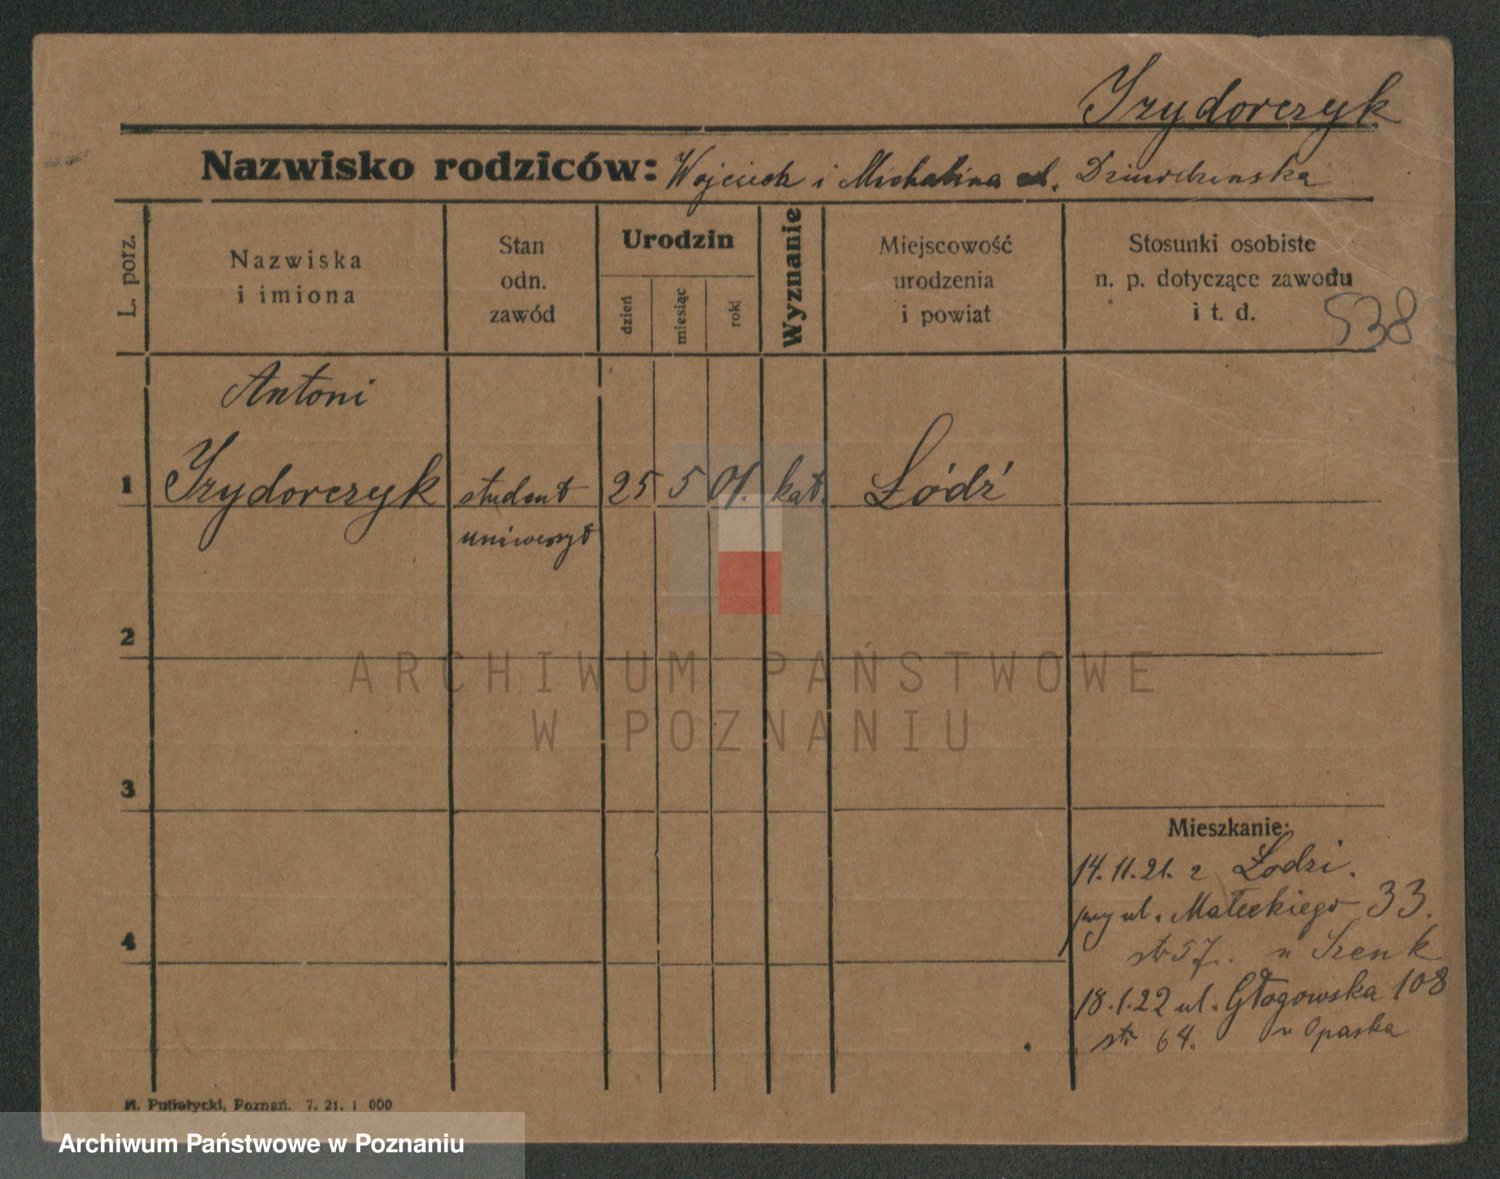 Izydorczyk
Nazwisko rodziców: Wojciech i Michalina
L. porz.
Nazwiska
i imiona
Stan
odn.
zawód
Urodzin
dzień
miesiąc
rok
Wyznanie
Miejscowość
urodzenia
i powiat
Stosunki osobiste
n. p. dotyczące zawodu
i t. d.
538
Antoni
1 Izydorczyk student 25 5 01. kat. Łódź
uniwersyt
2
3
4
Mieszkanie:
14.11.21. z Łodzi.
przy ul. Małeckiego 33.
str 57. u Szenk
18.1.22 ul. Głogowska 108
str 64. u Opaska
M. Putiatycki, Poznań. 7. 21. 1 000
ARCHIWUM PAŃSTWOWE
W POZNANIU
Archiwum Państwowe w Poznaniu